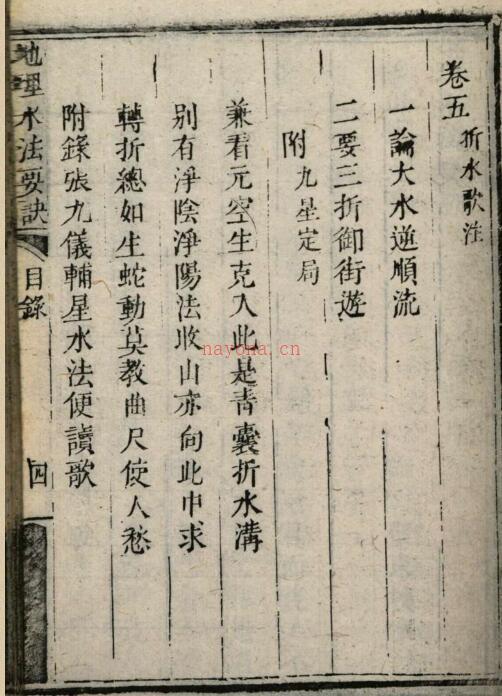 卷五 折水歌注
一論大水逆順流
二要三折御街遊
附九星定局
兼看元空生克入此是青囊折水溝
別有淨陰淨陽法收山亦向此中求
轉折總如生蛇動莫教曲尺使人愁
附錄張九儀輔星水法便讀歌
地理水法要訣
目錄
四
nayona.cn